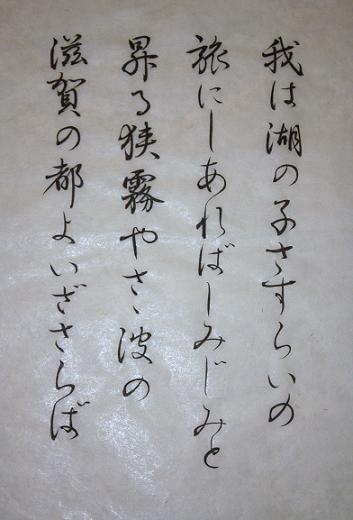 我は湖の子さすらいの
旅にしあればしみじみと
昇る狭霧やさゝ波の
滋賀の都よいざさらば